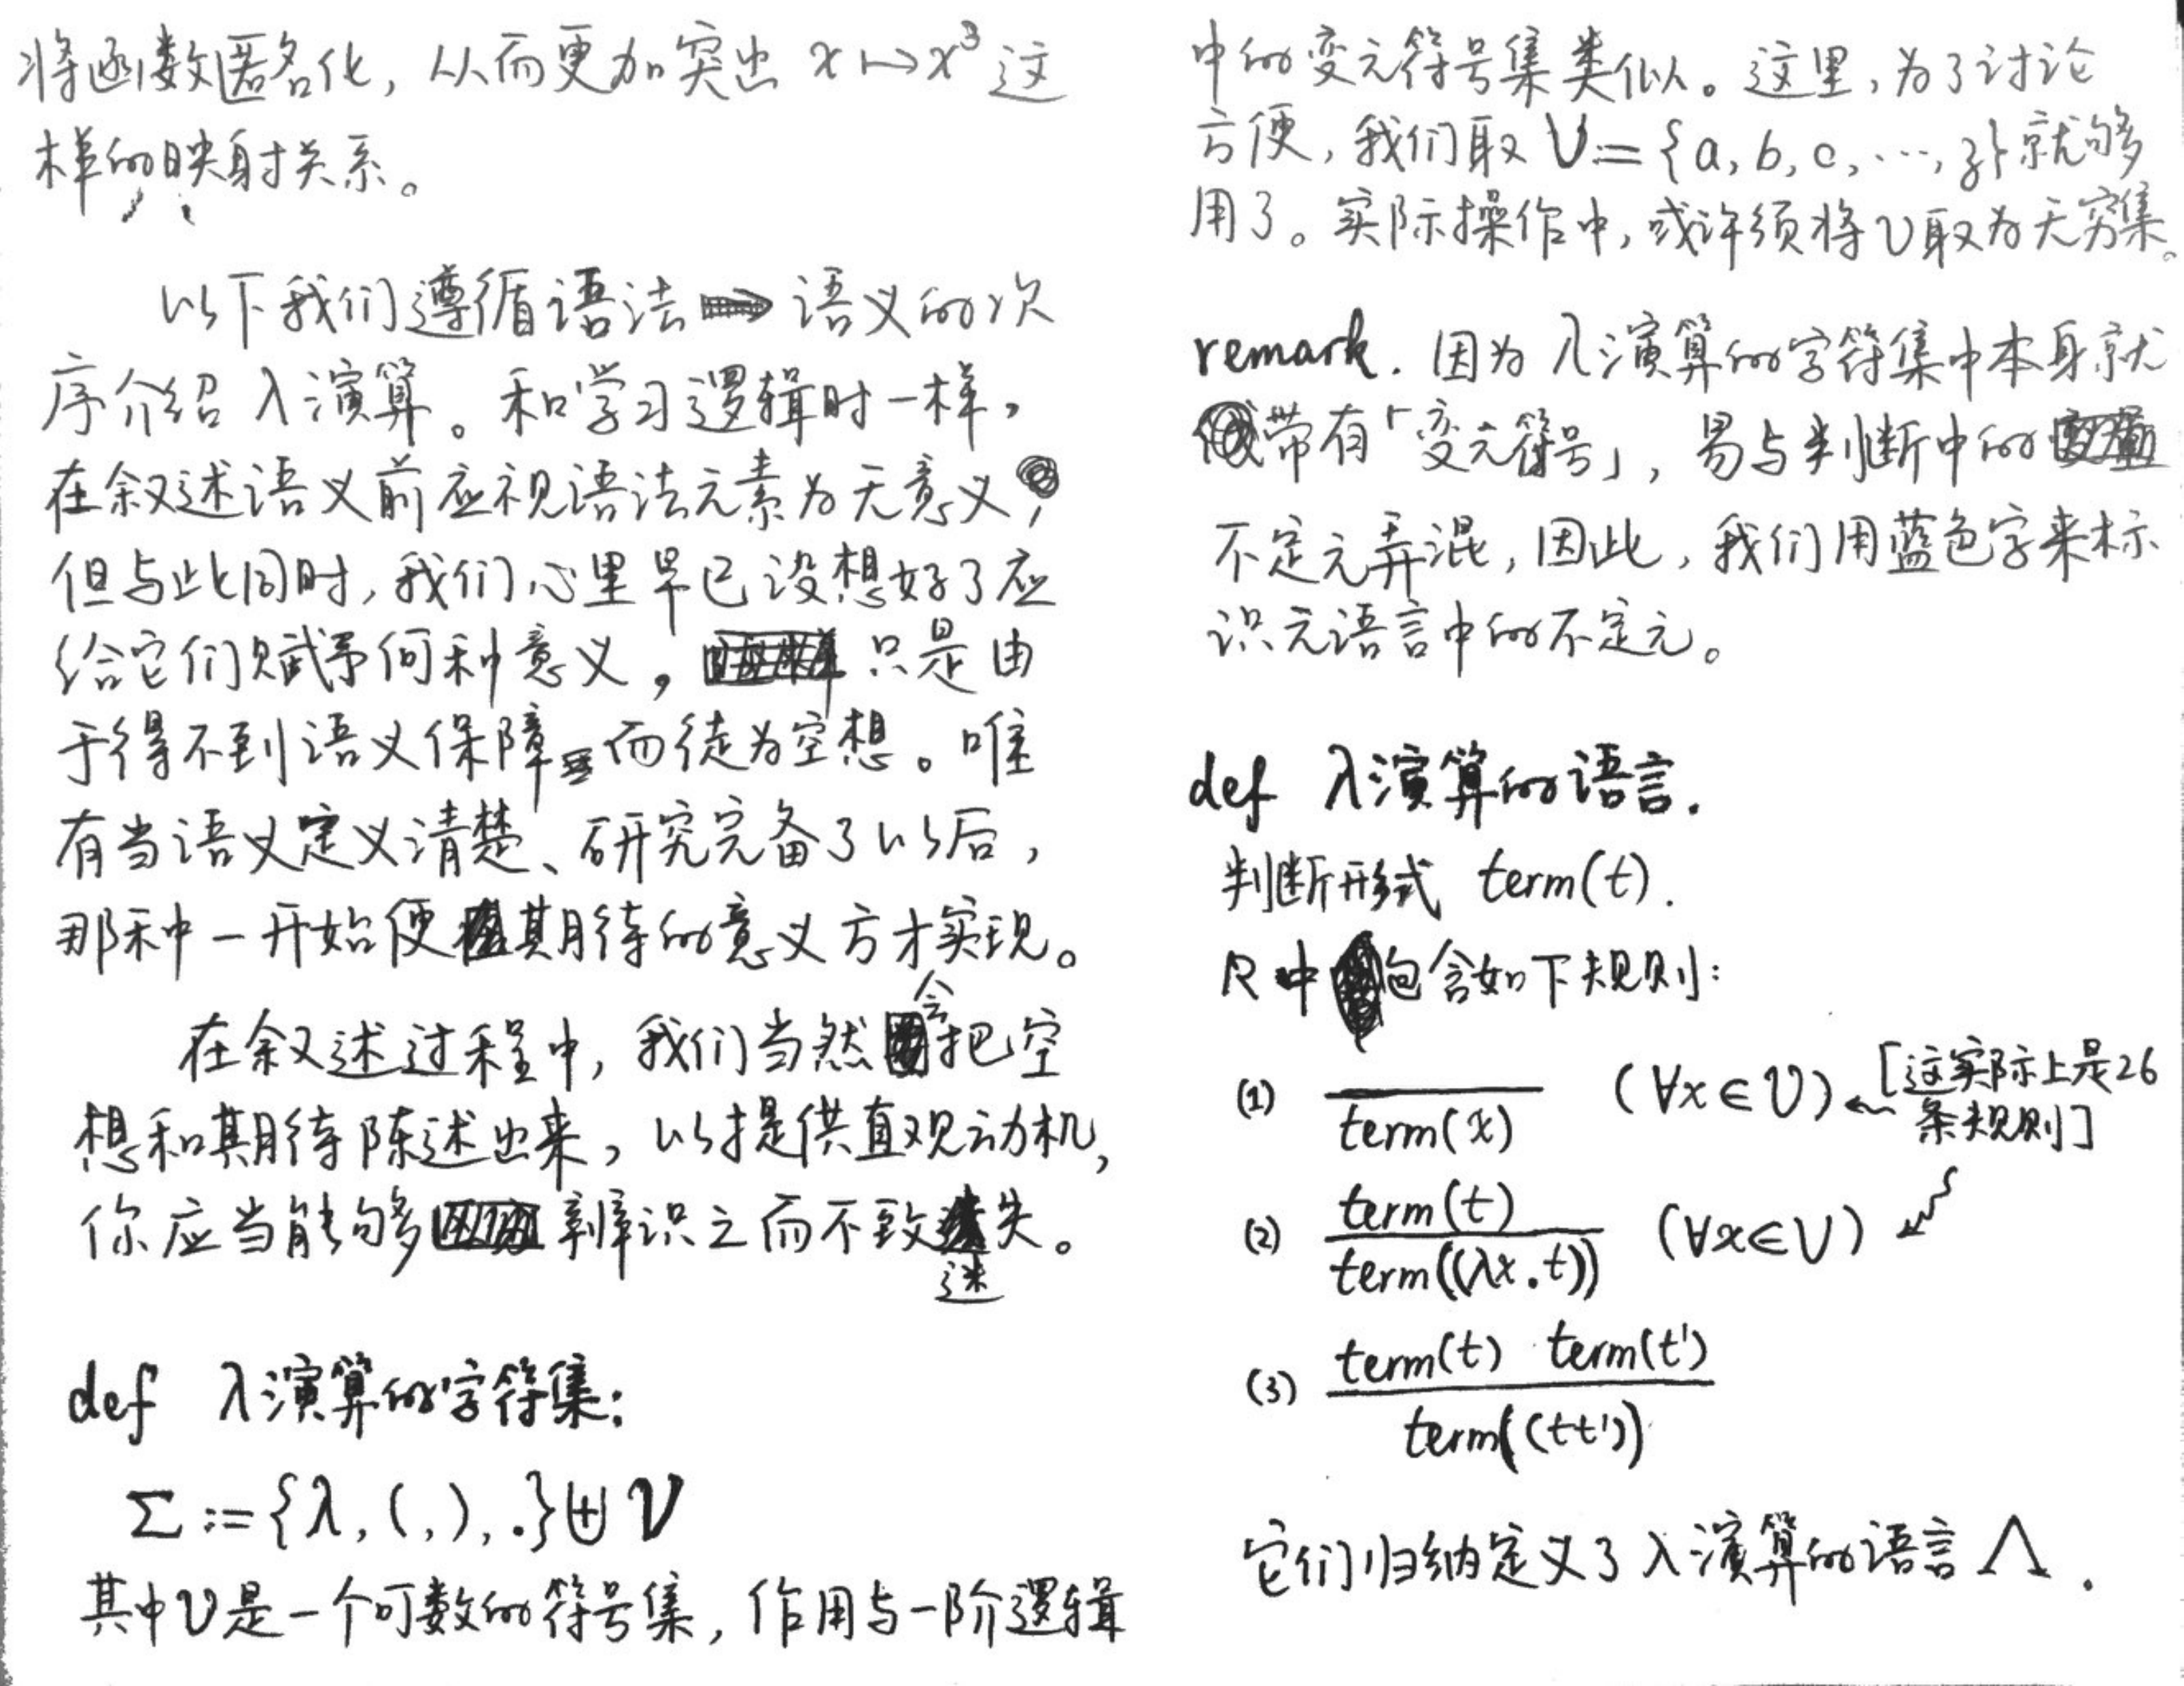 将函数匿名化，从而更加突出 x↦x³ 这
样的映射关系。
以下我们遵循语法 ⟹ 语义的次
序介绍 λ演算。和学习逻辑时一样，
在叙述语义前应视语法元素为无意义，
但与此同时，我们心里早已设想好了应
给它们赋予何种意义，只是由
于得不到语义保障而徒为空想。唯
有当语义定义清楚、研究完备了以后，
那种一开始便期待的意义方才实现。
在叙述过程中，我们当然会把空
想和期待陈述出来，以提供直观动机，
你应当能够辨识之而不致迷失。
def λ演算的字符集：
Σ := {λ, (, ), .} ⊎ V
其中V是一个可数的符号集，作用与一阶逻辑
中的变元符号集类似。这里，为了讨论
方便，我们取 V := {a, b, c, ⋯, z}就够
用了。实际操作中，或许须将V取为无穷集。
remark. 因为 λ演算的字符集中本身就
带有「变元符号」，易与判断中的
不定元弄混，因此，我们用蓝色字来标
识元语言中的不定元。
def λ演算的语言.
判断形式 term(t).
R中包含如下规则：
(1) ―――― (∀x∈V) ← [这实际上是26
term(x) 条规则]
term(t)
(2) ―――― (∀x∈V) ↙
term((λx.t))
term(t) term(t')
(3) ――――――
term((tt'))
它们归纳定义了 λ演算的语言 Λ.